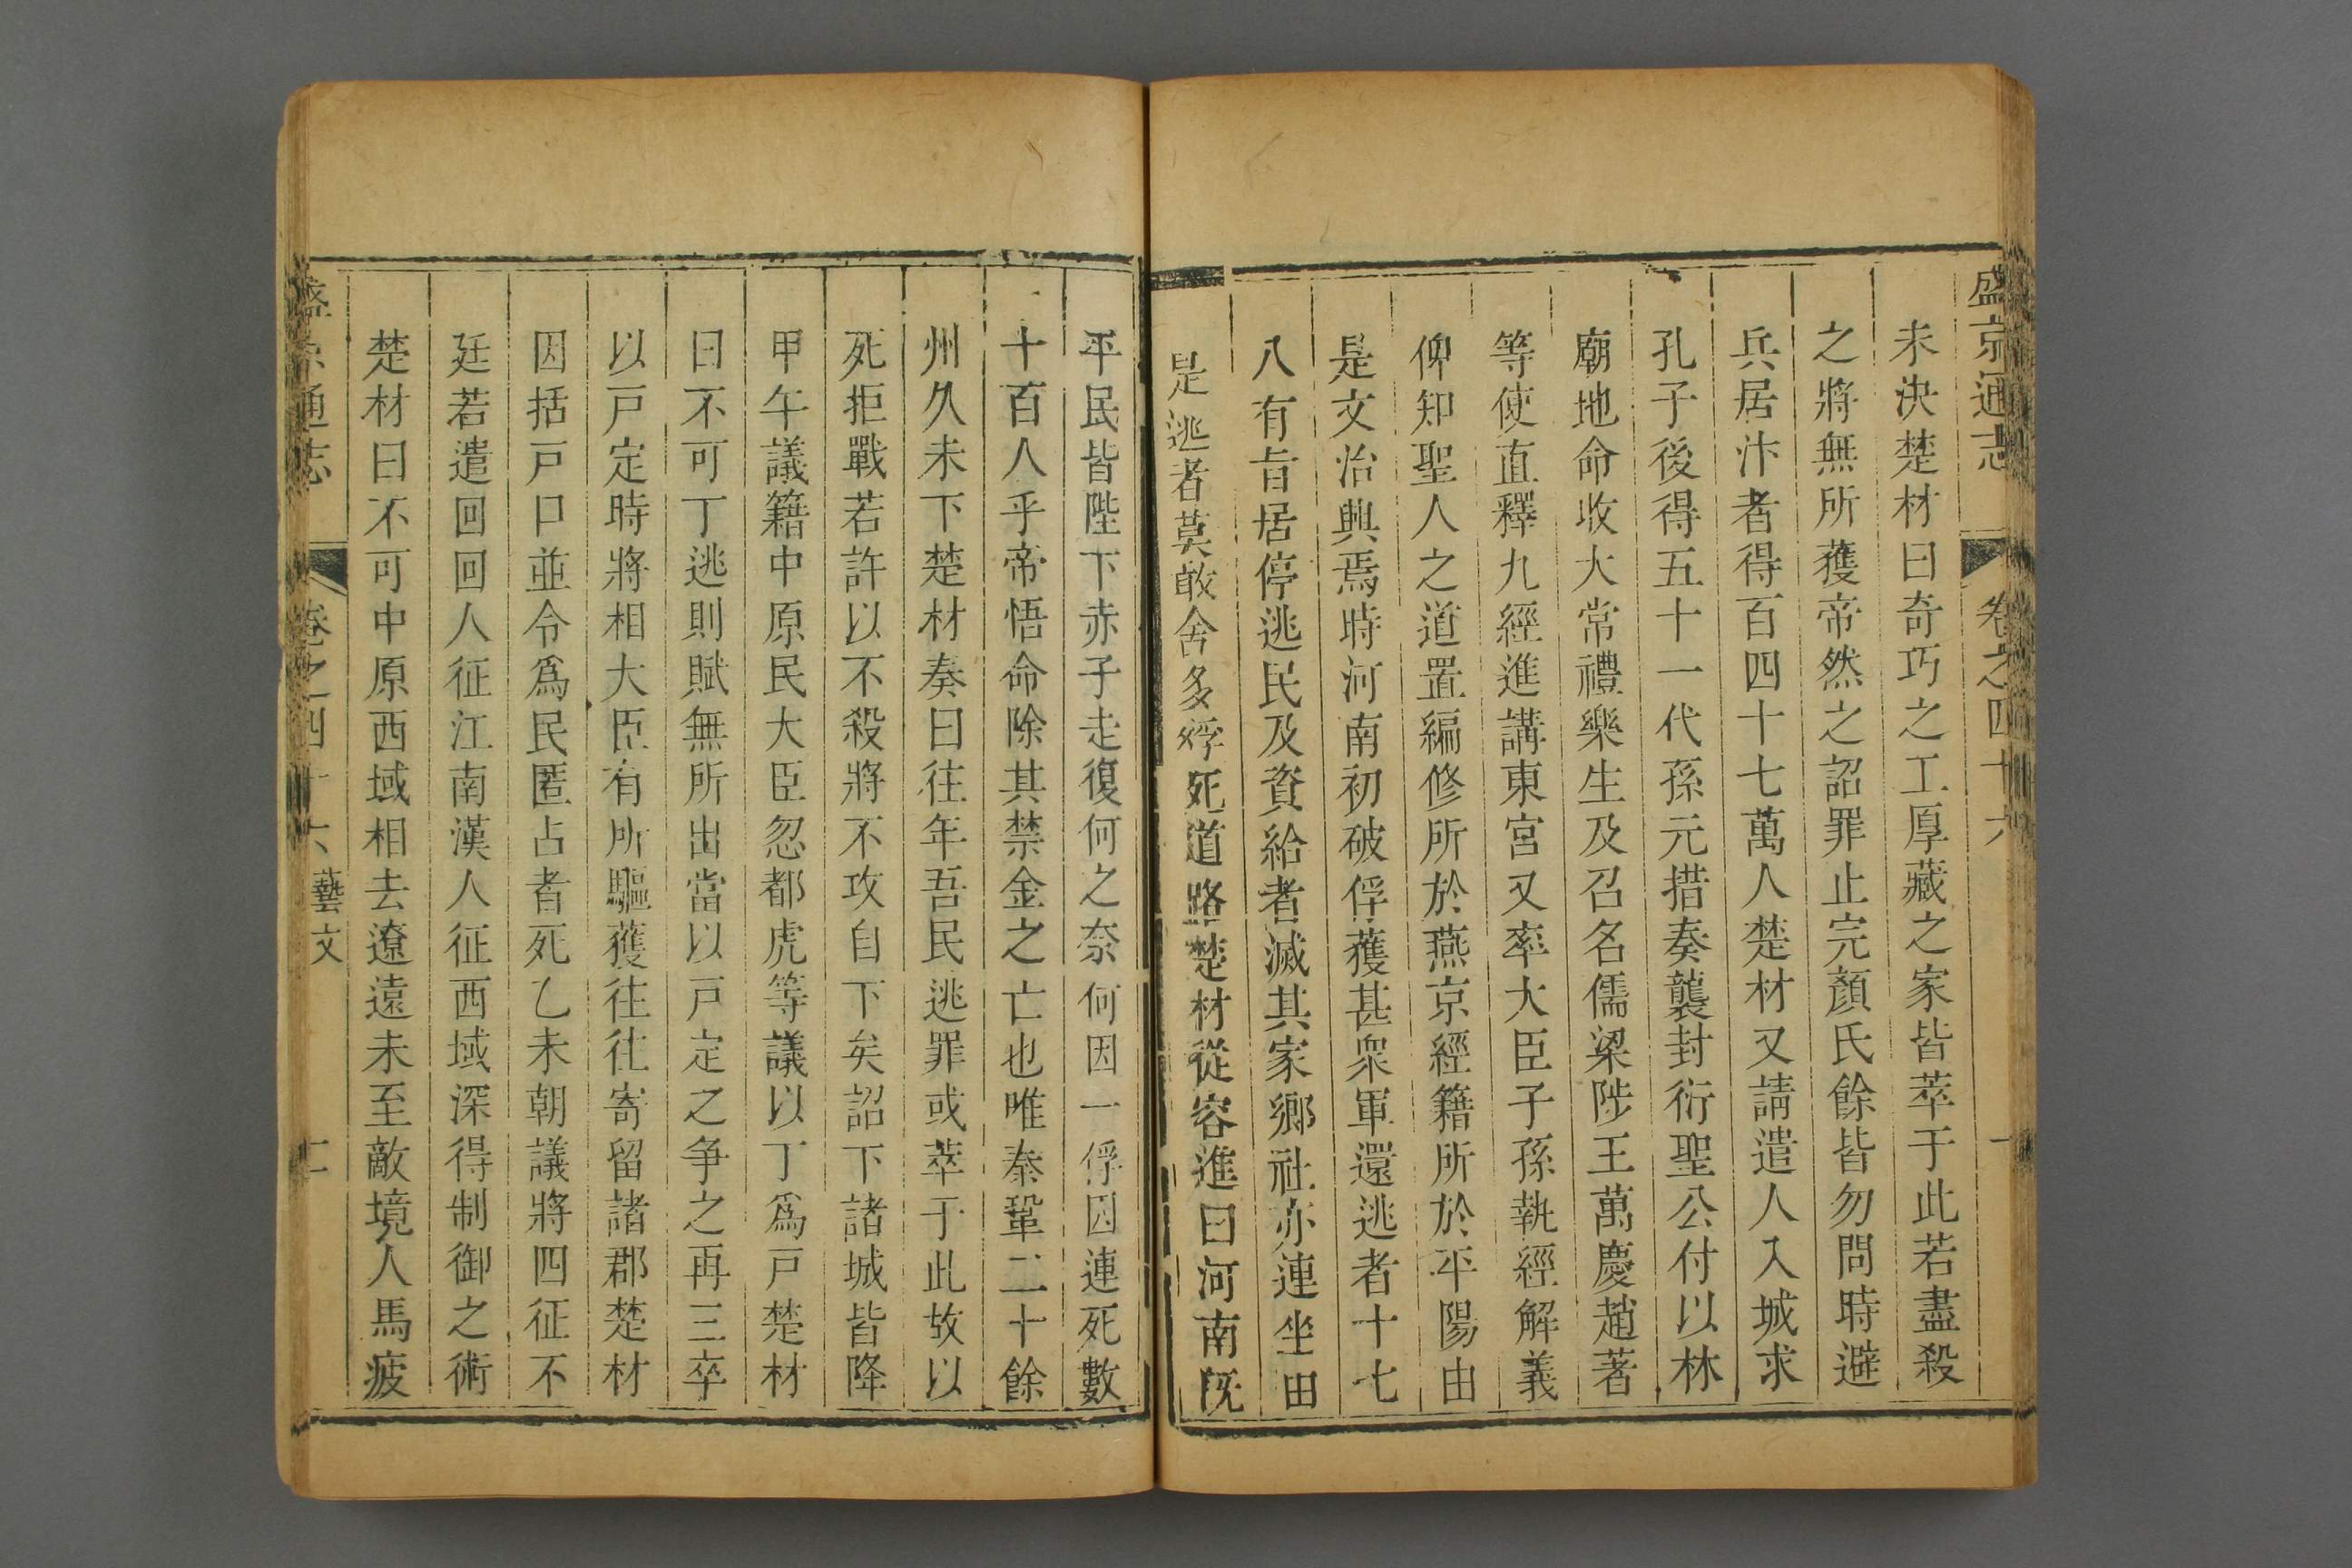 盛京通志 卷之四十六
未決楚材曰奇巧之工厚藏之家皆萃于此若盡殺
之將無所獲帝然之詔罪止完顏氏餘皆勿問時避
兵居汴者得百四十七萬人楚材又請遣人入城求
孔子後得五十一代孫元措奏襲封衍聖公付以林
廟地命收大常禮樂生及召名儒梁陟王萬慶趙著
等使直釋九經進講東宮又率大臣子孫執經解義
俾知聖人之道置編修所於燕京經籍所於平陽由
是文治興焉時河南初破俘獲甚衆軍還逃者十七
八有旨居停逃民及資給者滅其家鄉社亦連坐由
是逃者莫敢舍多殍死道路楚材從容進曰河南旣
平民皆陛下赤子走復何之奈何因一俘囚連死數
十百人乎帝悟命除其禁金之亡也唯秦鞏二十餘
州久未下楚材奏曰往年吾民逃罪或萃于此故以
死拒戰若許以不殺將不攻自下矣詔下諸城皆降
甲午議籍中原民大臣忽都虎等議以丁爲戸楚材
曰不可丁逃則賦無所出當以戸定之争之再三卒
以戸定時將相大臣有所驅獲往往寄留諸郡楚材
因括戸口並令爲民匿占者死乙未朝議將四征不
廷若遣回回人征江南漢人征西域深得制御之術
楚材曰不可中原西域相去遼遠未至敵境人馬疲
盛京通志 卷之四十六 藝文